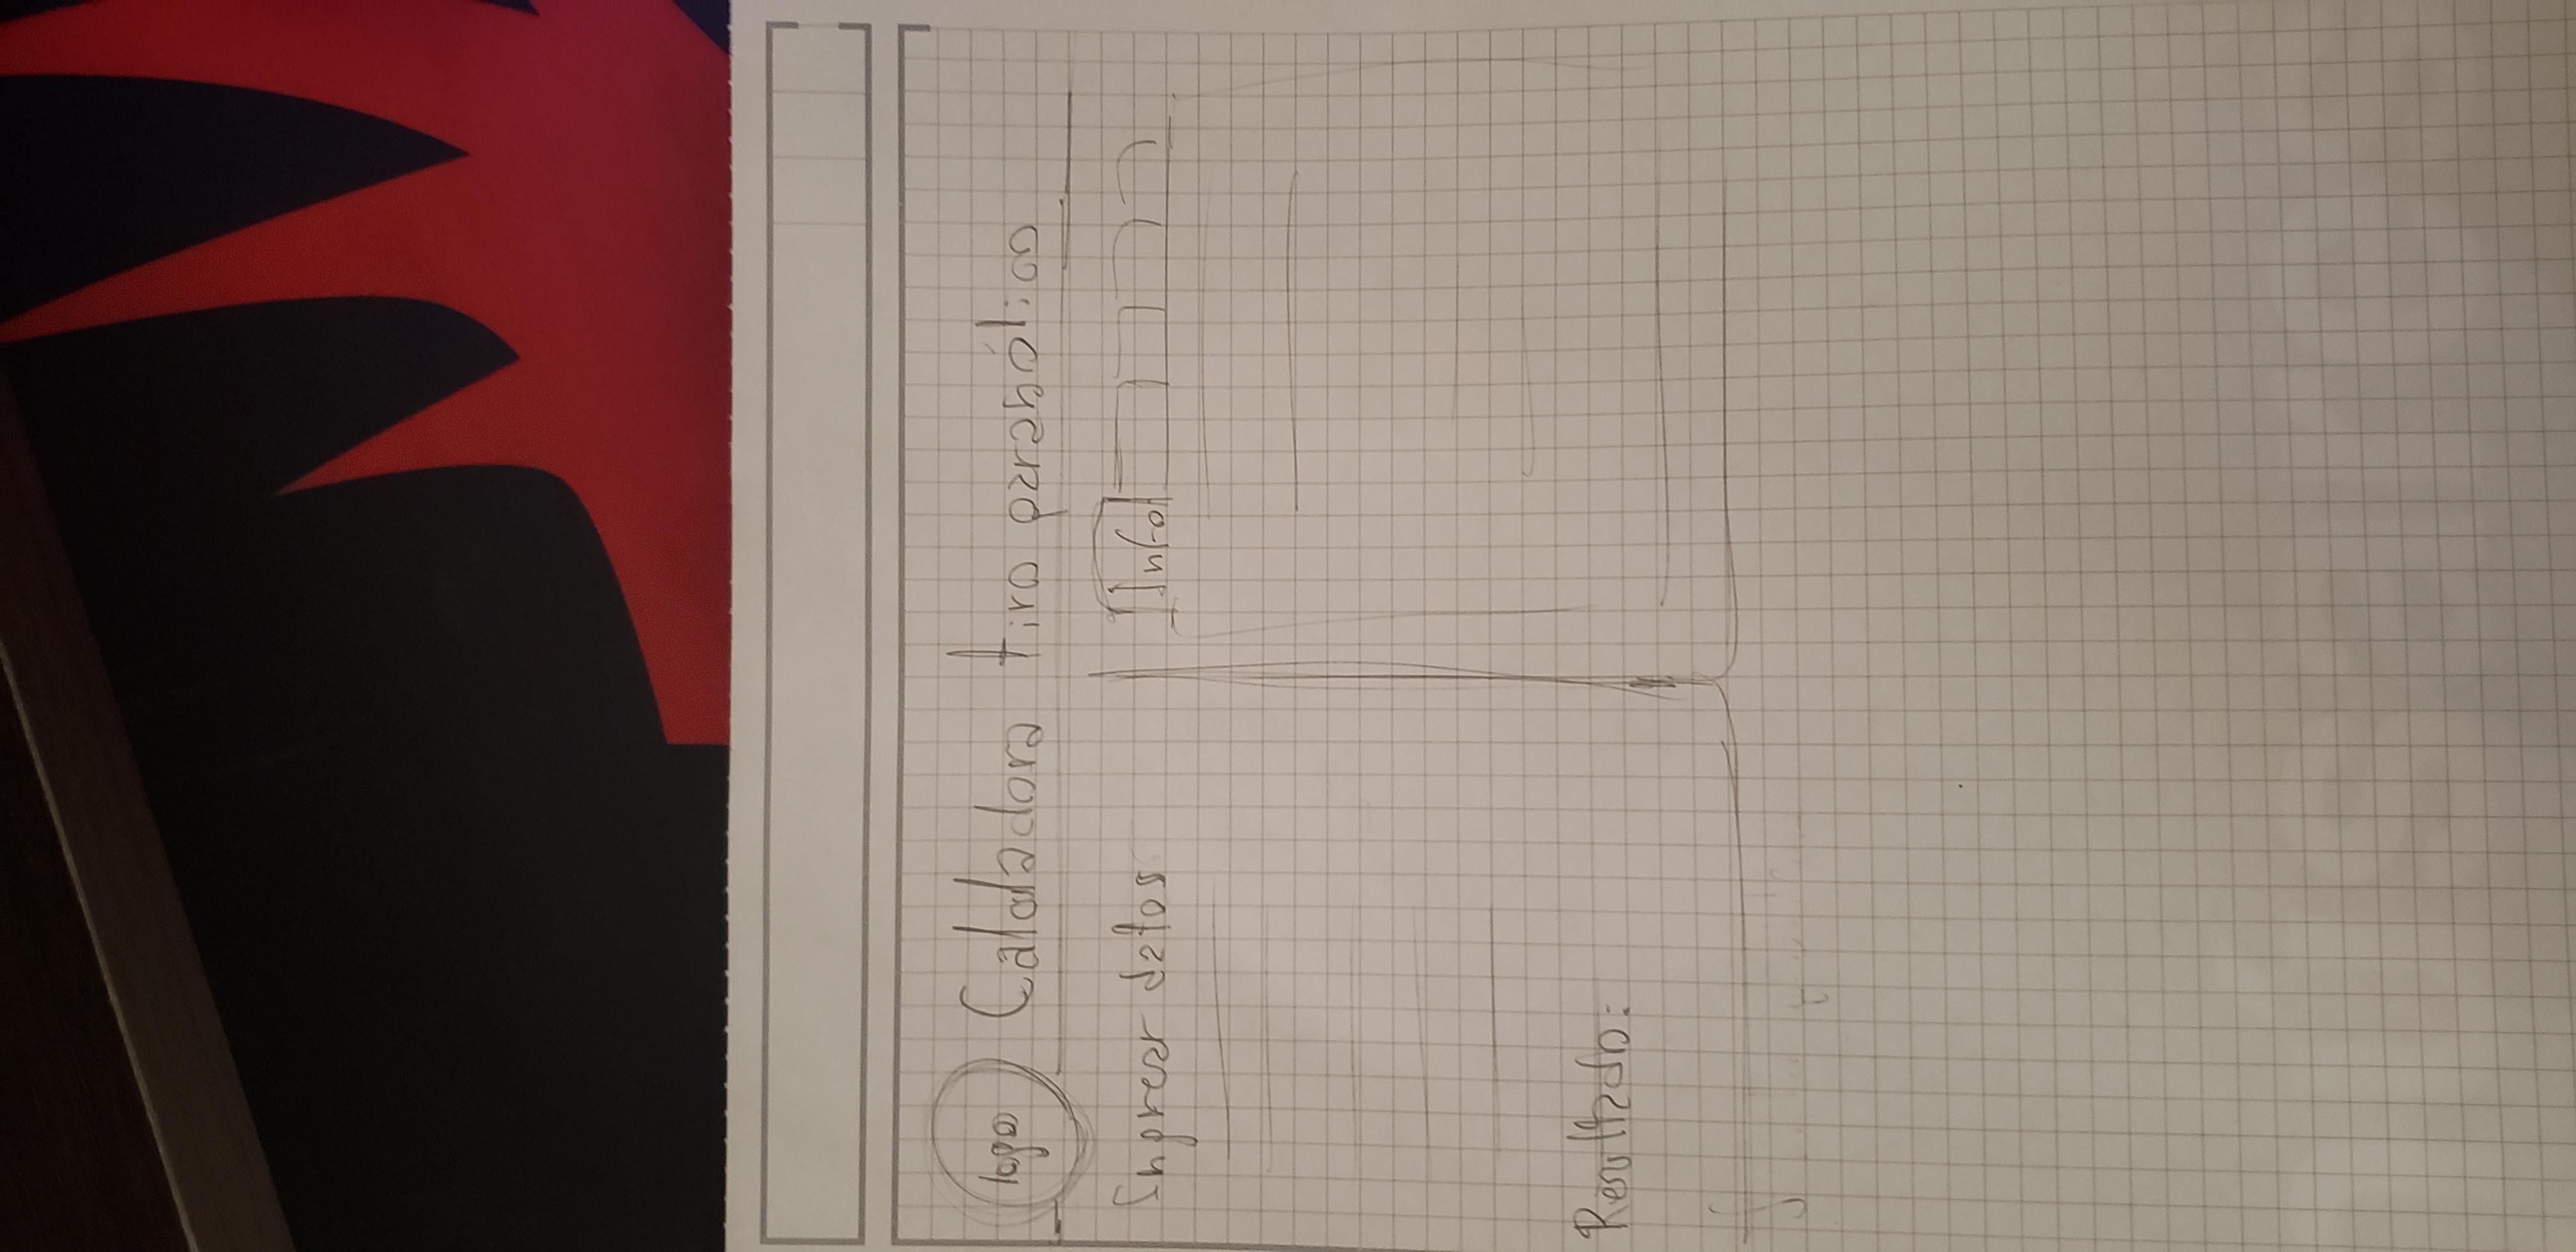 logo
Calculadora tiro parabólico
Ingresar datos
Info
Resultado: